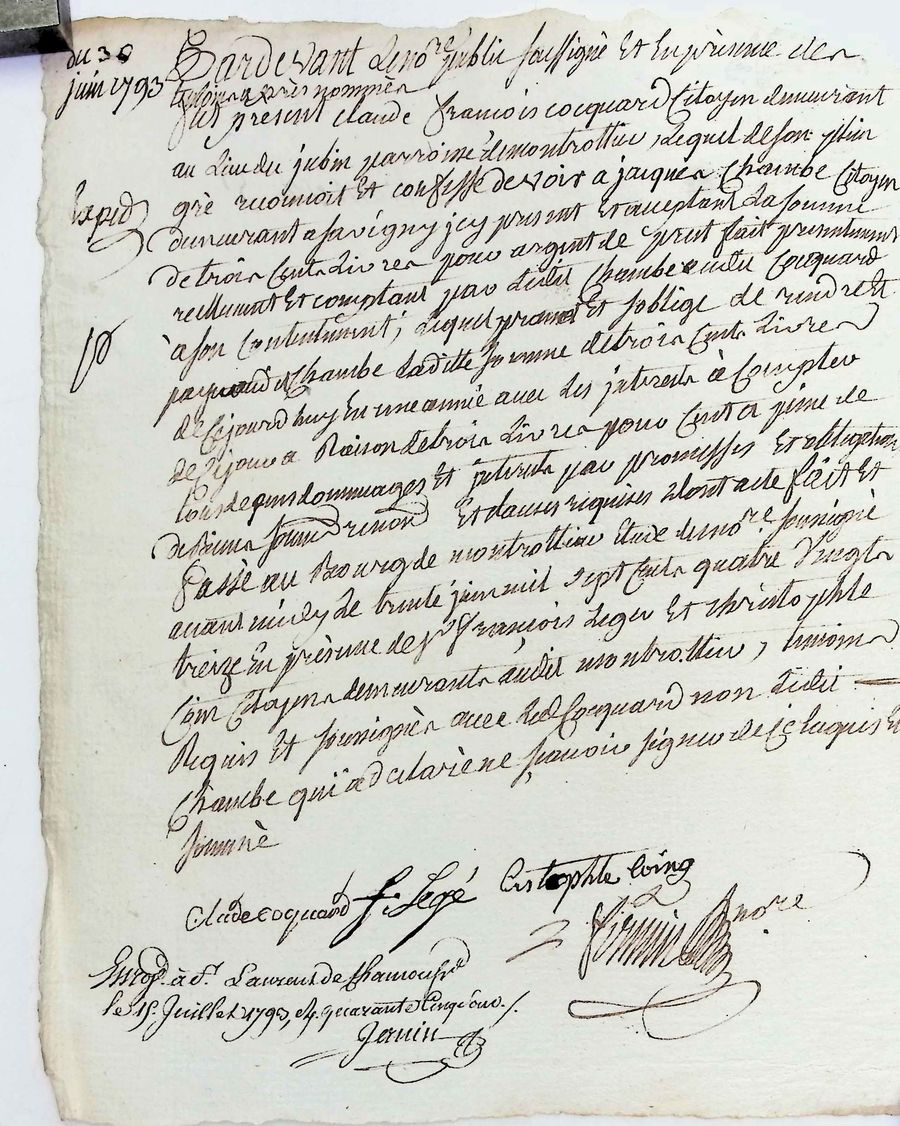 du 30
juin 1793
Pardevant le no.re public soussigné Et En présence des
temoins après nommés
fut present claude françois cocquard Citoyen demeurant
au Lieu du jubin parroisse de montrottier, Lequel de son plein
gré reconnoit Et confesse devoir a jacques Chambe Citoyen
Expéd
demeurant a Savigny jcy présent Et acceptant La somme
de trois Cents Livres pour argent de prêt fait presentement
reellement Et comptant par Ledit Chambe audit Cocquard
à son Contentement, Lequel promet Et soblige de rendre Et
payer audit Chambe Laditte somme de trois Cents Livres
de Cejourdhuy En une année avec Les jnterests à Compter
de Cejour a Raison de trois Livres pour Cent a peine de
tous depens dommages Et jnterests par promesses Et obligation
de Biens soumis renon Et clauses requises dont acte fait Et
Passé au Bourg de montrottier Etude du no.re soussigné
avant midy Le trente juin mil sept Cents quatre Vingts
treize En présence de s.r françois Leger Et christophle
Coin Citoyens demeurants audit montrottier, temoins
Requis Et soussignés avec Led Cocquard non Ledit
Chambe qui a déclaré ne sçavoir signer de Ce Enquis Et
sommé
Claude coquard f. Legé Cristophle Coing
firmin no.re
Enreg. à S.t Laurent de Chamousset
le 15 Juillet 1793, quarante Cinq sous.
Janin